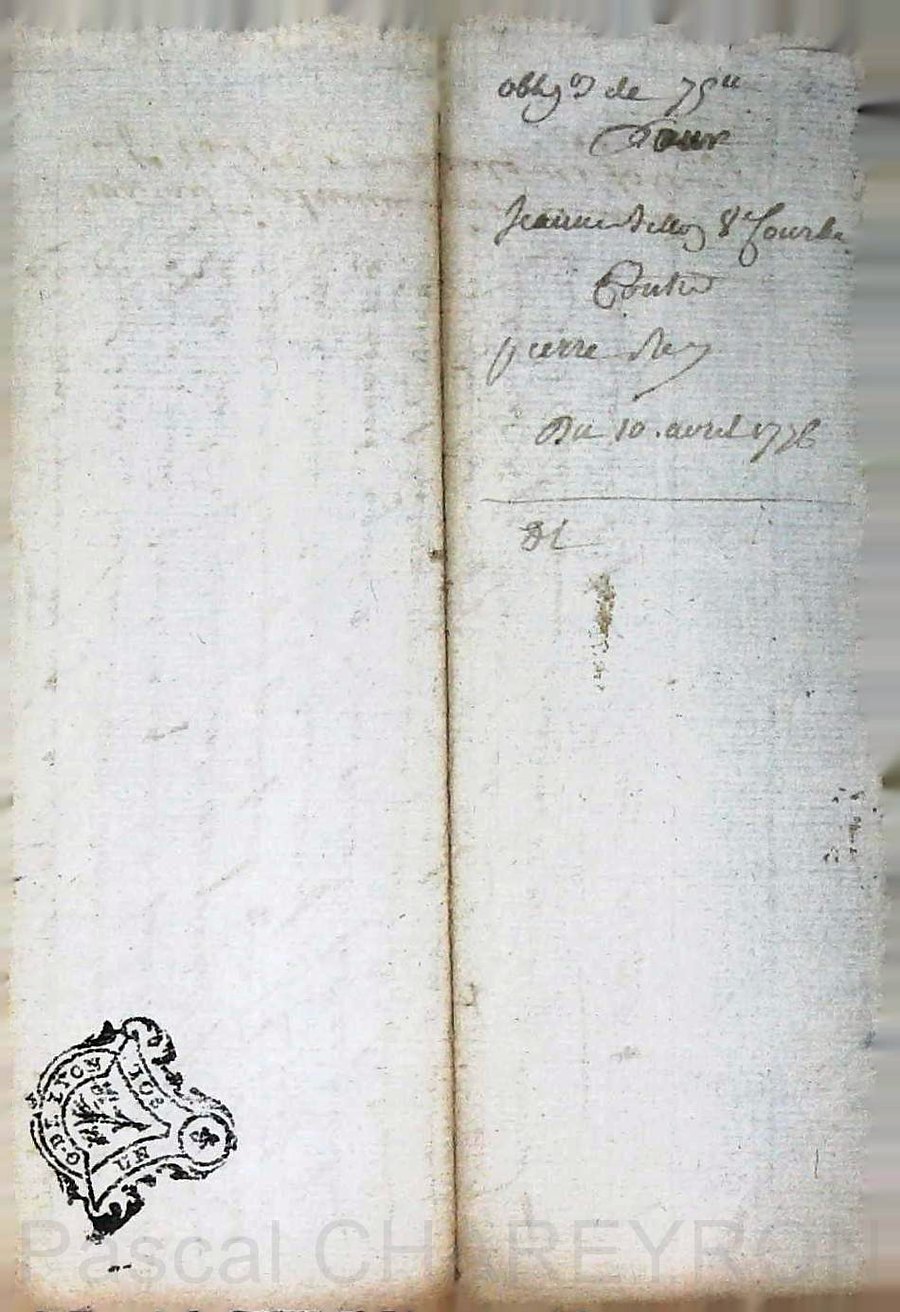 oblig.on de 75ll
Pour
Jeanne Ve Courbe
Contre
pierre Rey
Du 10. avril 1776
G. DE LYON
Pascal CHAREYRON